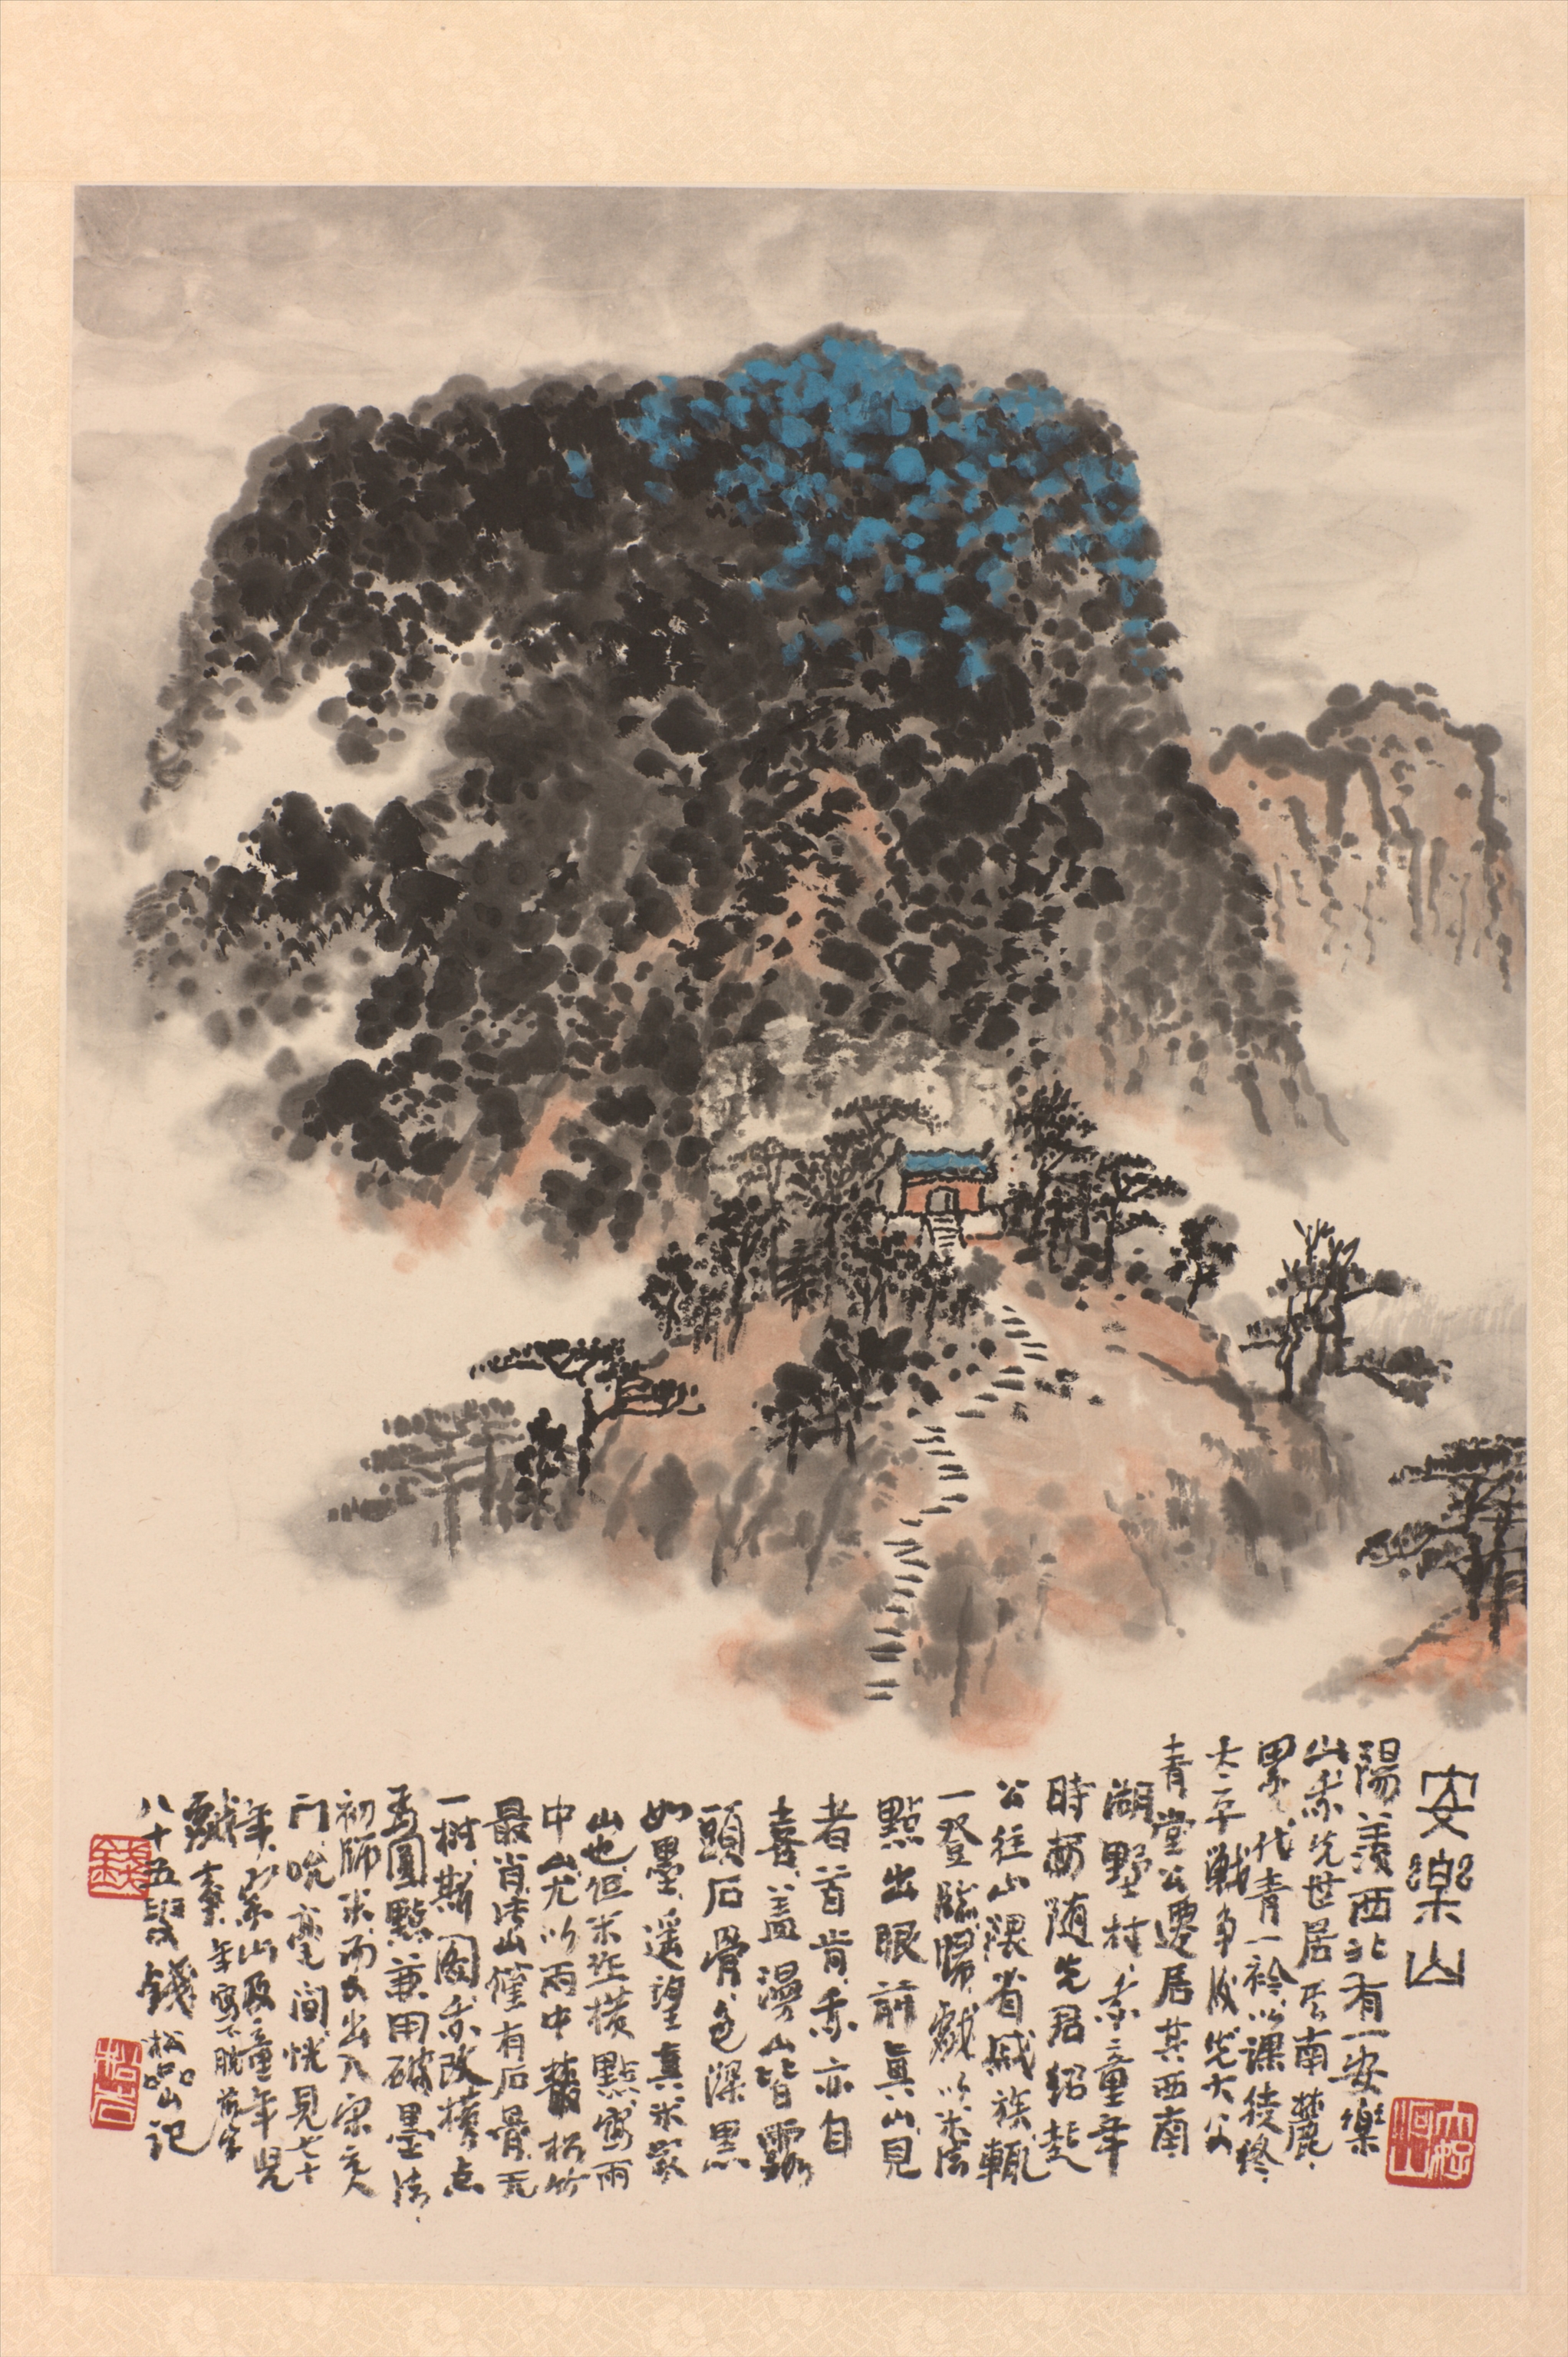 安樂山
陽羨西北有一安樂
山余先世居山南麓
累代青一衿以課徒終
太平戰爭後先大父
青堂公遷居其西南
湖㳇村余童年
時每隨先君紹起
公往山隈省戚族輒
一登臨歸戲以米法
點出眼前真山見
者首肯余亦自
喜蓋漫山皆露
頭石骨色深黑
如墨遥望真米家
山也但米芾橫點寫雨
中山尤以雨中叢松竹
最肖此山僅有石骨無
一樹斯圖余改橫点
為圓點兼用破墨法
初師米而又出入宋元人
門吮毫間恍見七十
年家山及童年兒
戲素年寫不脱
八十五叟錢松嵒山記